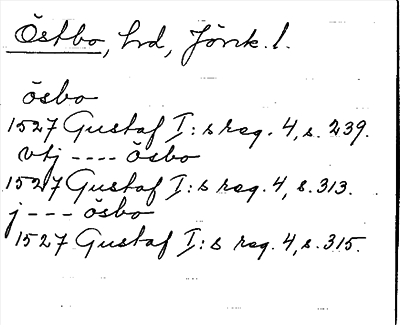 Östbo, hd, Jönk. l.
ösbo
1527 Gustaf I:s reg. 4, s. 239.
vtj ---- ösbo
1527 Gustaf I:s reg. 4, s. 313.
j --- ösbo
1527 Gustaf I:s reg. 4, s. 315.